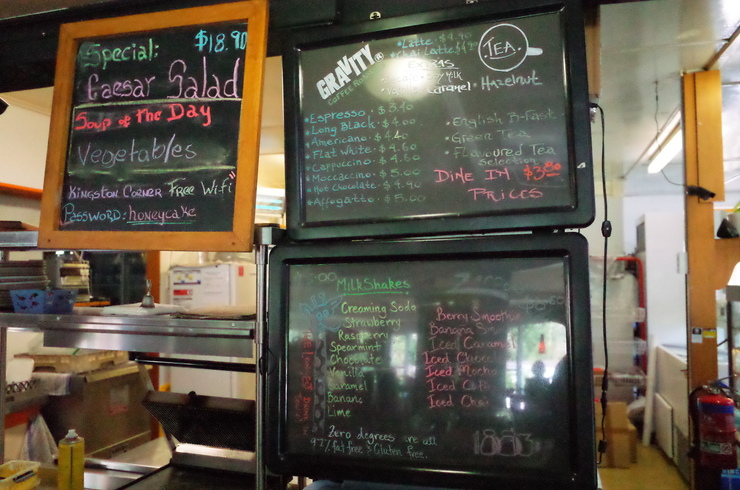 Special:
$18.90
Caesar Salad
Soup of the Day
Vegetables
Kingston Corner Free Wifi"
Password: honeycake
GRAVITY
Latte $4.90
Chai Latte
TEA
Hazelnut
Caramel
Espresso
Long Black $4.00
Americano
Flat White $4.60
Cappoccino $4.60
Moccaccino $5.00
Hot Chocolate $4.90
Affogatto $5.00
English B-Fast
Green Tea
Flavoured Tea
Selection
Dine In
Prices
MilkShakes
Creaming Soda
Strawberry
Raspberry
Spearmint
Chocolate
Vanilla
Caramel
Banana
Lime
Berry Smoothie
Banana
Iced Caramel
Iced
Iced Mocha
Iced
Iced Chai
Zero degrees are all
97% fat free & Gluten free.